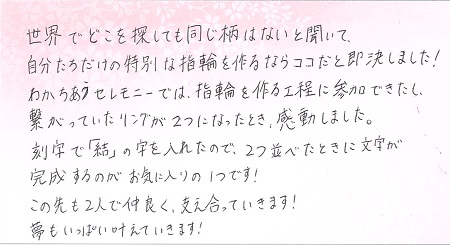 世界でどこを探しても同じ柄はないと聞いて、
自分たちだけの特別な指輪を作るならココだと即決しました!
わかちあうセレモニーでは、指輪を作る工程に参加できたし、
繋がっていたリングが2つになったとき、感動しました。
刻字で「結」の字を入れたので、2つ並べたときに文字が
完成するのがお気に入りの1つです!
この先も2人で仲良く、支え合っていきます!
夢もいっぱい叶えていきます!